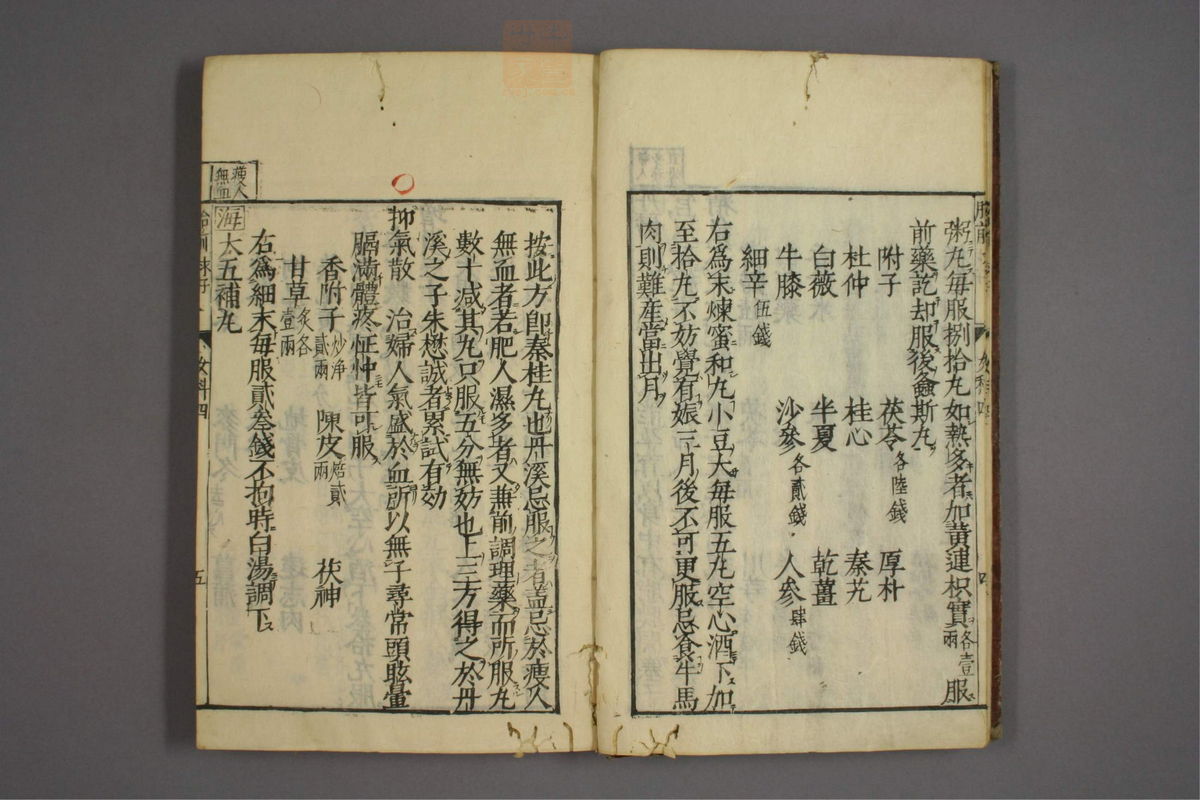 粥丸每服捌拾丸如熱多者加黃連枳實各壹兩服
前藥訖却服後螽斯丸
附子 茯苓各陸錢 厚朴
杜仲 桂心 秦艽
白薇 半夏 乾薑
牛膝 沙參各貳錢 人參肆錢
細辛伍錢
右爲末煉蜜和丸小豆大每服五丸空心酒下加
至拾丸不妨覺有娠三月後不可更服忌食牛馬
肉則難產當出月
女科四
四
按此方卽秦桂丸也丹溪忌服之者蓋忌於瘦人
無血者若肥人濕多者又兼前調理藥而所服丸
數十減其九只服五分無妨也上三方得之於丹
溪之子朱懋誠者累試有効
抑氣散 治婦人氣盛於血所以無子尋常頭眩暈
膈滿體疼怔忡皆可服
香附子炒淨貳兩 陳皮焙貳兩 茯神
甘草炙各壹兩
右爲細末每服貳叁錢不拘時白湯調下
瘦人無血
海 大五補丸
女科四
五